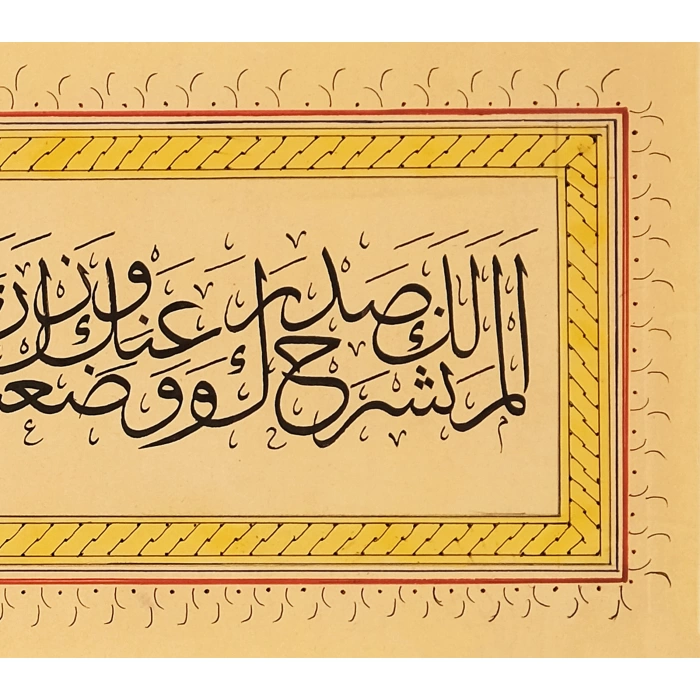 الم نشرح لك صدرك ووضعنا عنك وزرك